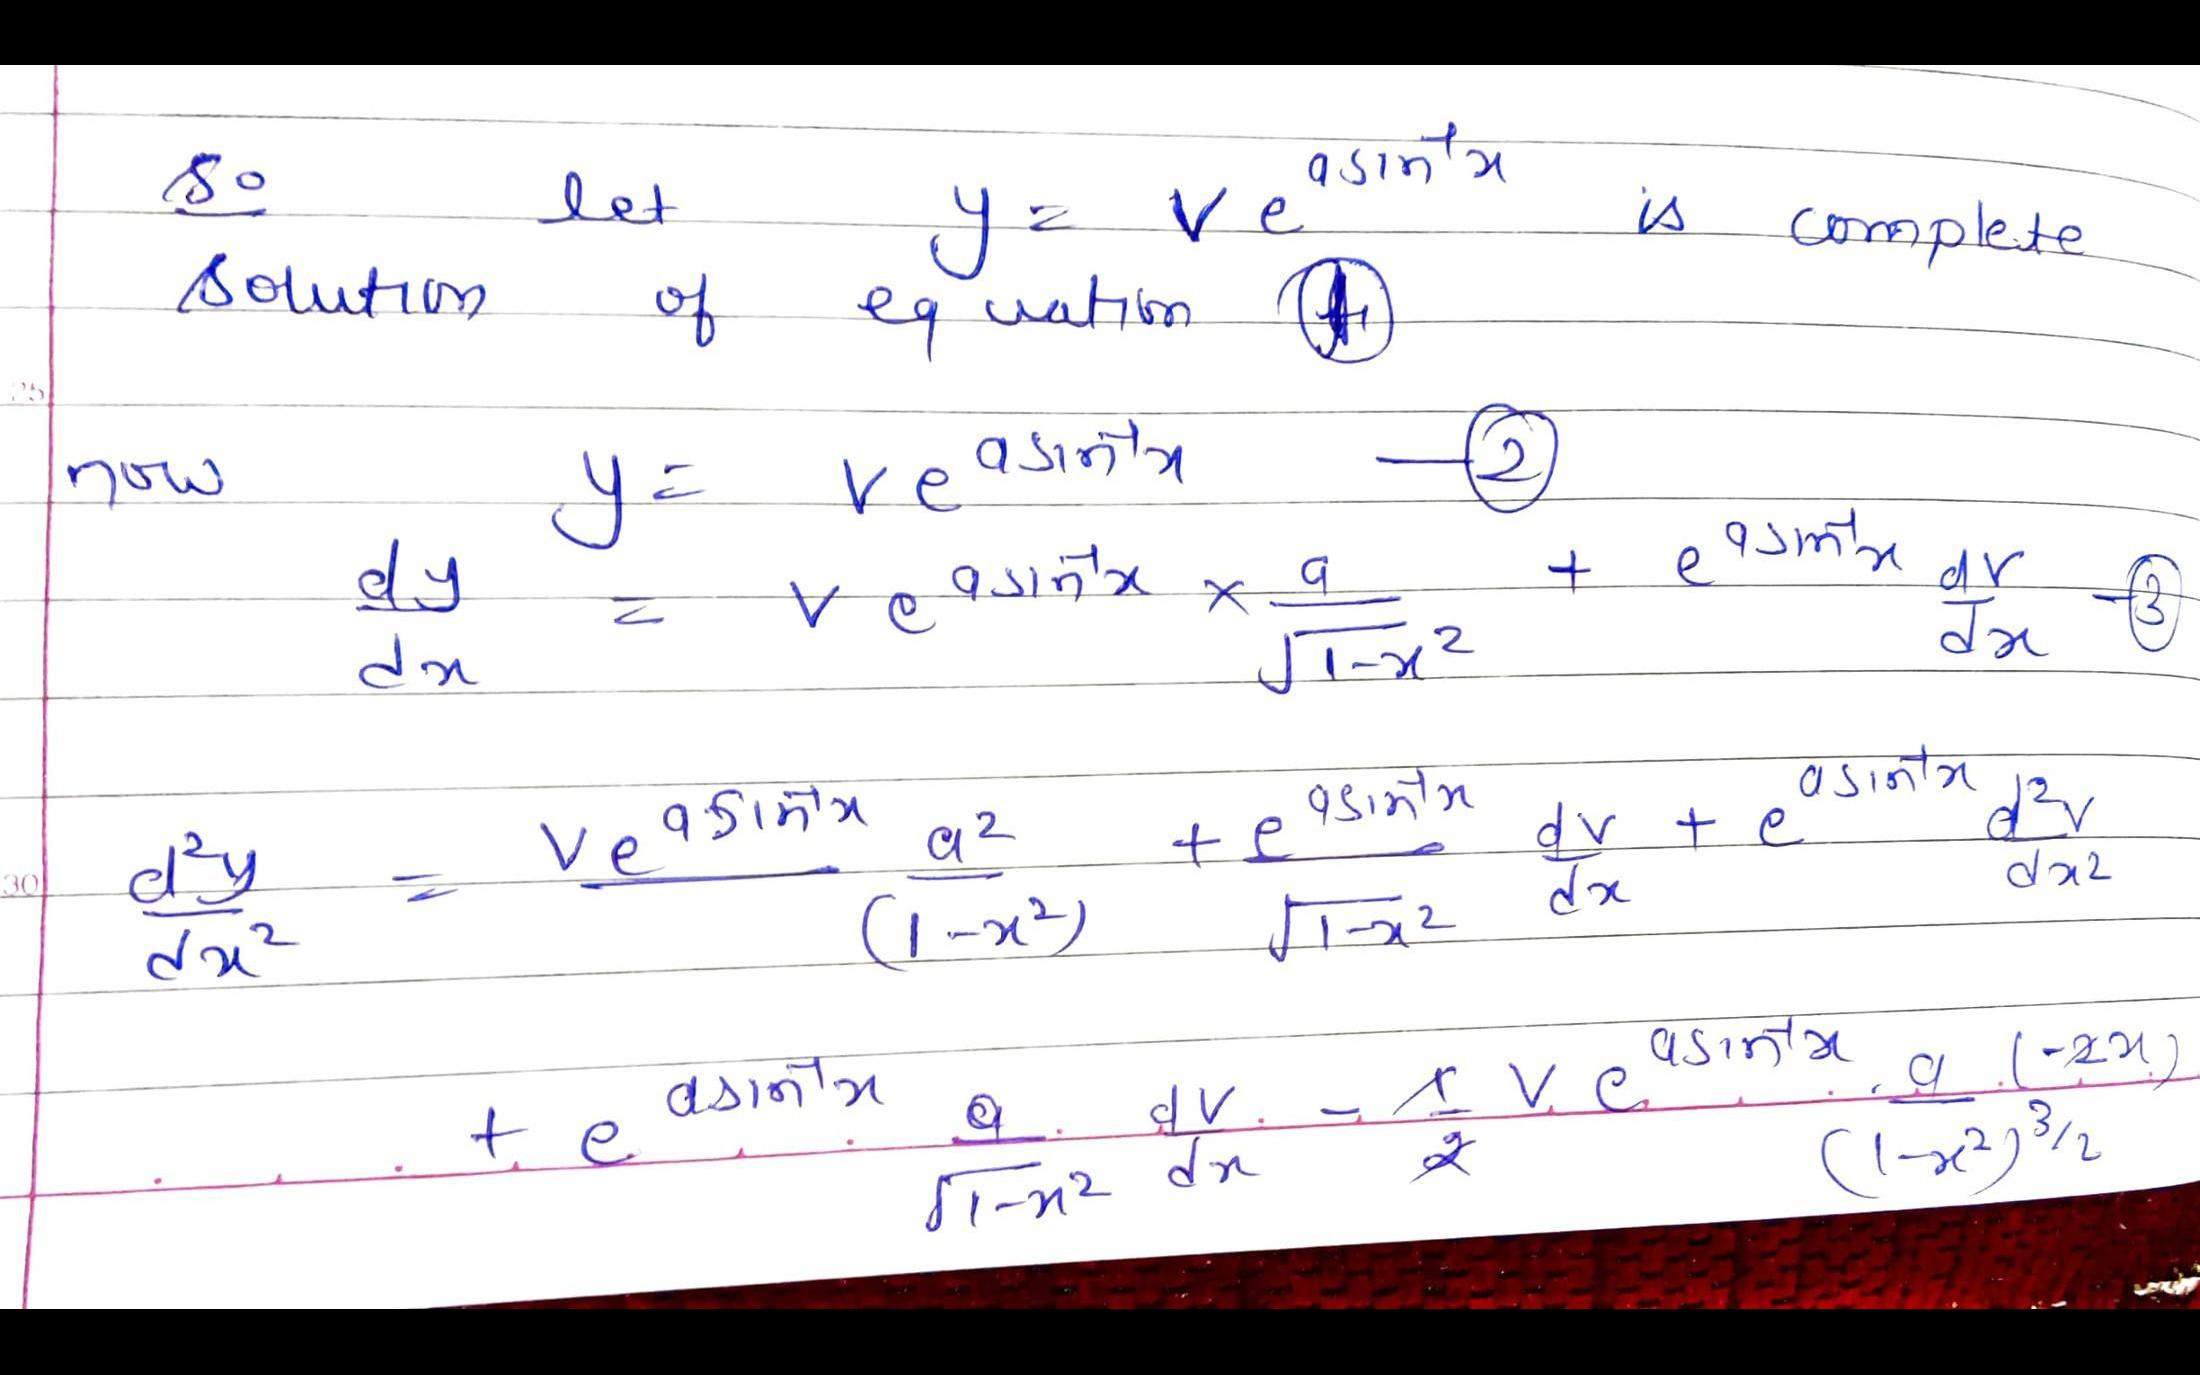 So let y = v e^{a sin⁻¹x} is complete
solution of equation ①
25
now y = v e^{a sin⁻¹x} —②
dy/dx = v e^{a sin⁻¹x} × a/√(1-x²) + e^{a sin⁻¹x} dv/dx —③
30
d²y/dx² = v e^{a sin⁻¹x} a²/(1-x²) + e^{a sin⁻¹x}/√(1-x²) dv/dx + e^{a sin⁻¹x} d²v/dx²
+ e^{a sin⁻¹x} a/√(1-x²) dv/dx - 1/2 v e^{a sin⁻¹x} · a/(1-x²)^{3/2} (-2x)